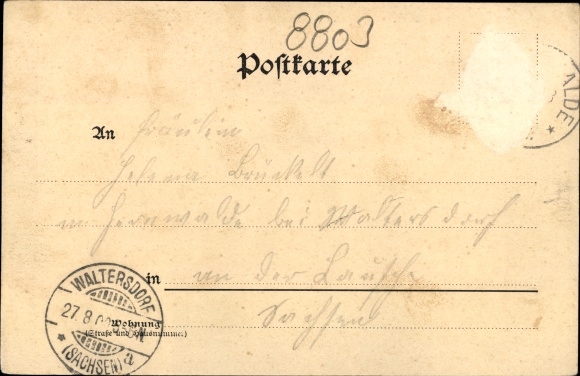 8803
Postkarte
ALDE
An Fräulein
Helena Brückelt
in Herrnwalde bei Waltersdorf
in an der Lausche
Sachsen
WALTERSDORF
27.8.0
(SACHSEN) a
Wohnung
(Straße und Hausnummer.)